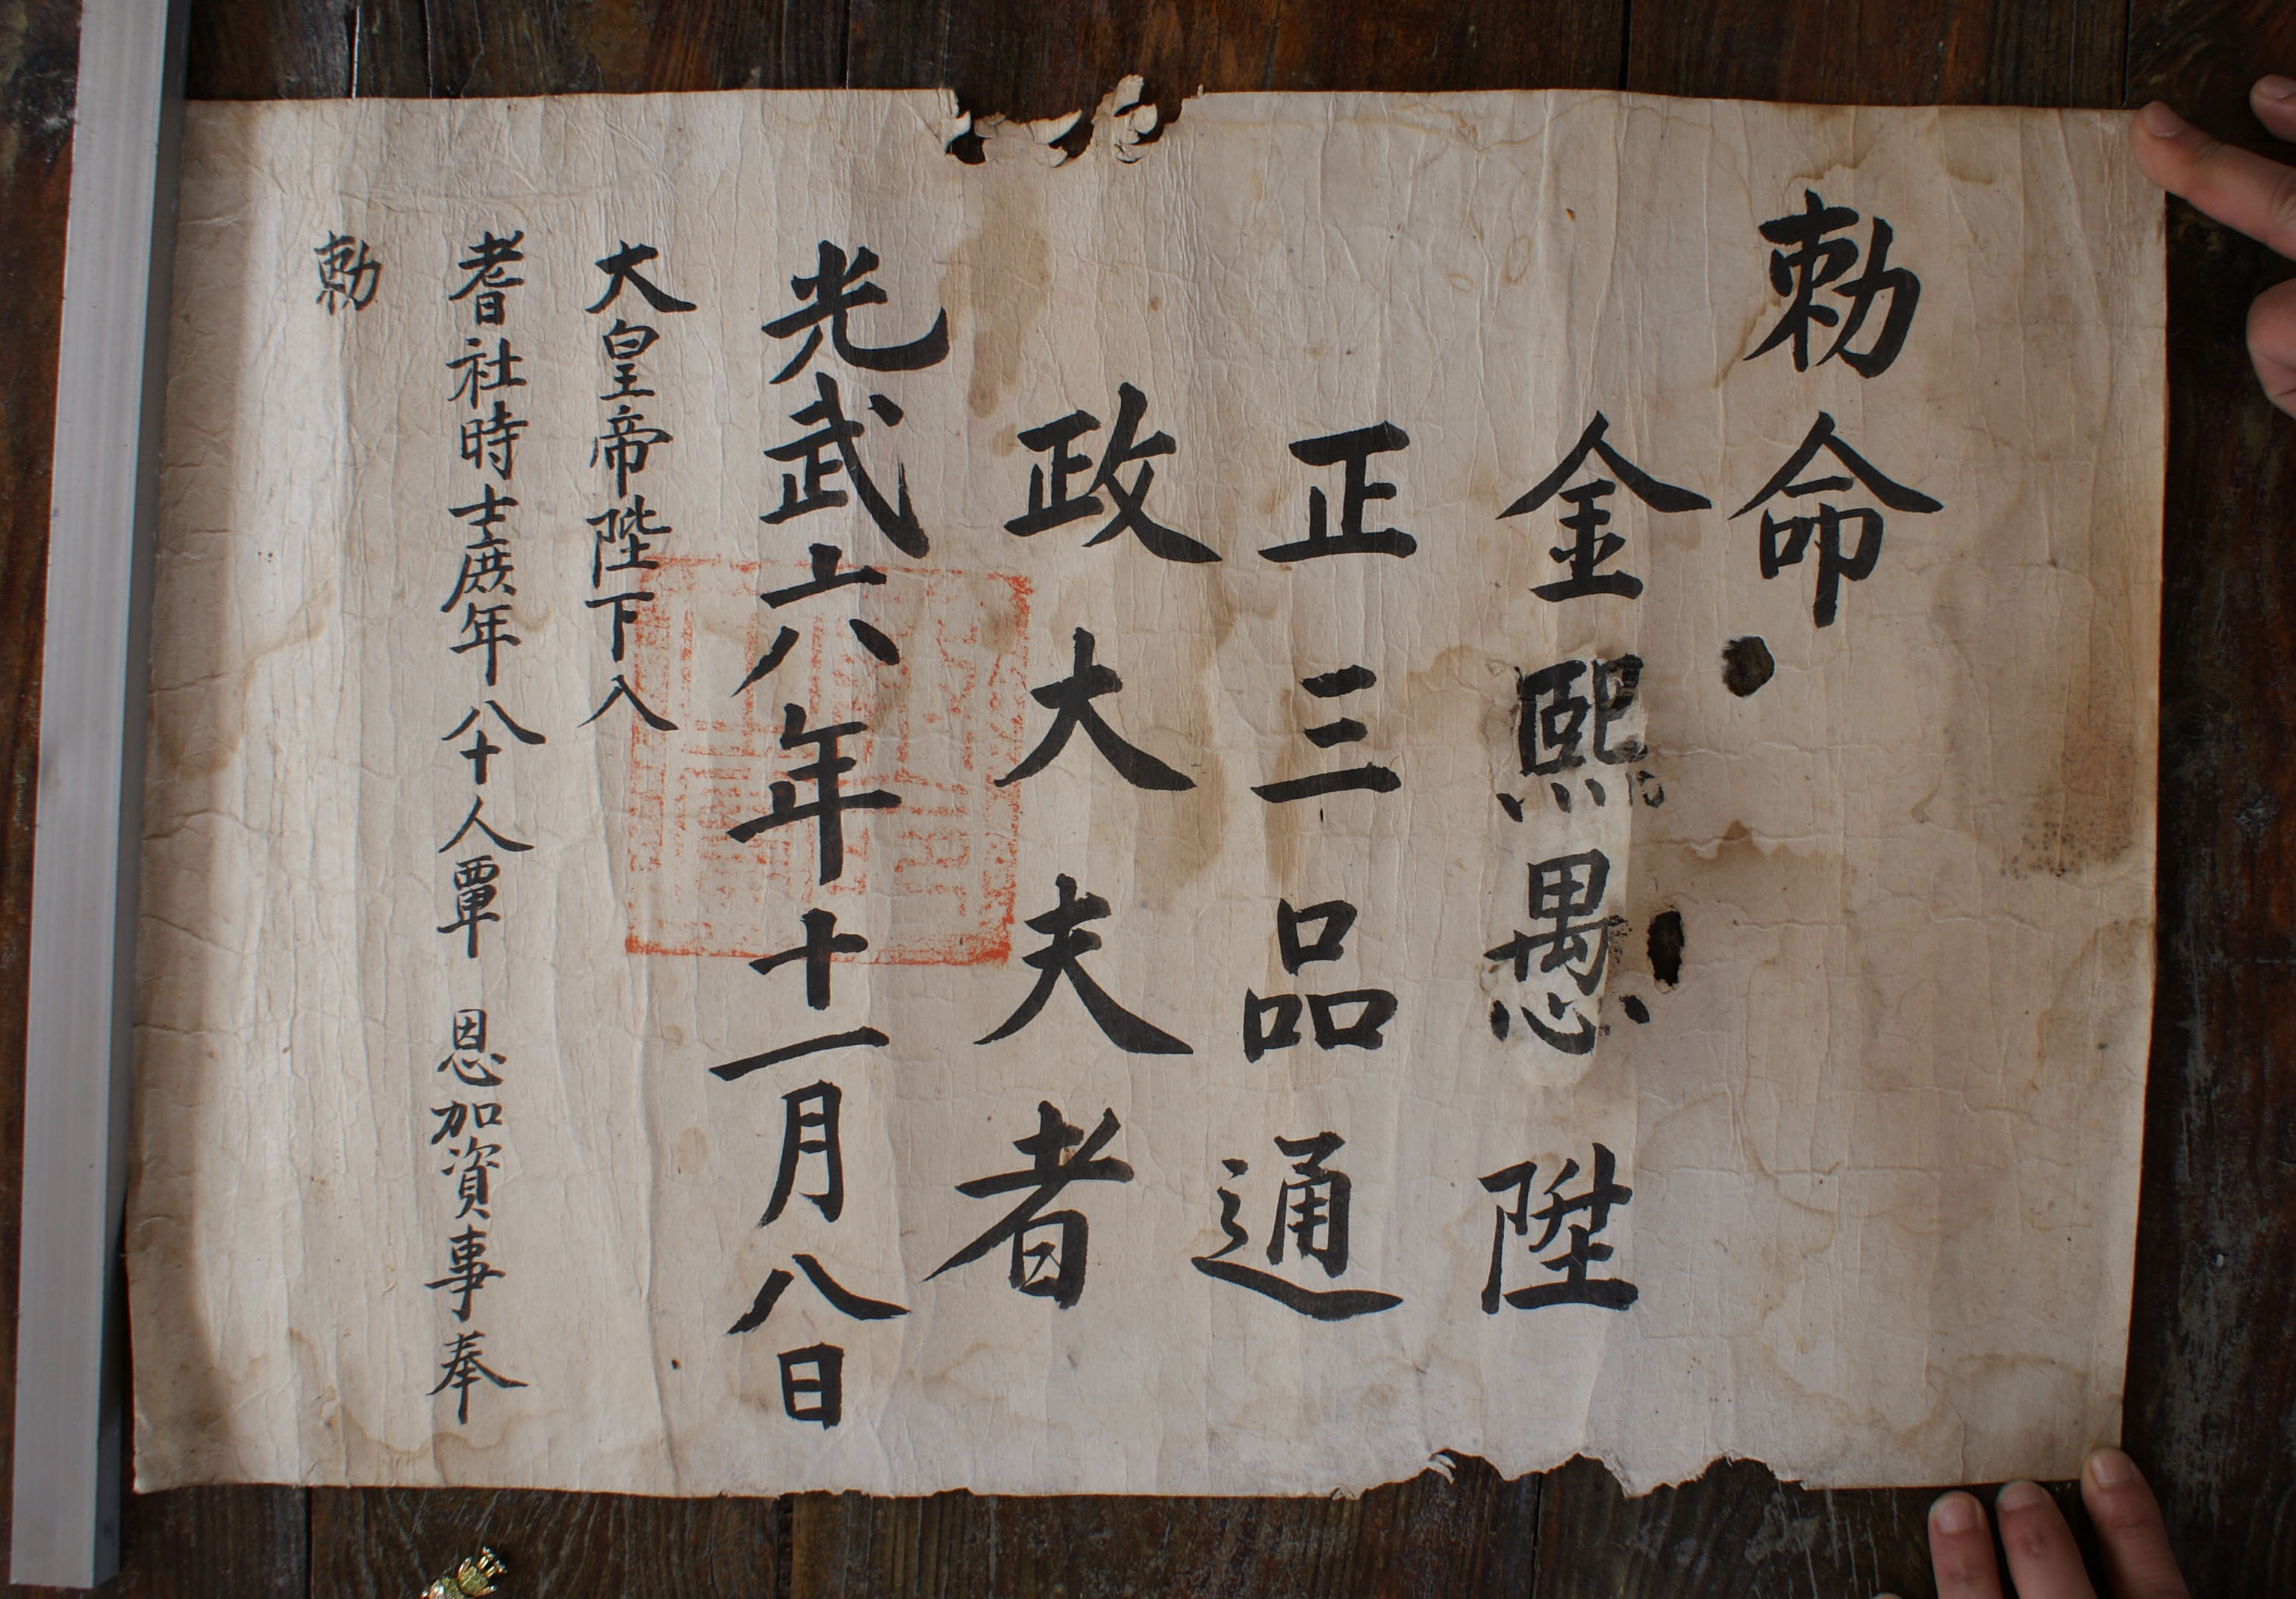 勅命
金熙愚陞
正三品通
政大夫者
光武六年十一月八日
大皇帝陛下入
耆社時士庶年八十人覃恩加資事奉
勅